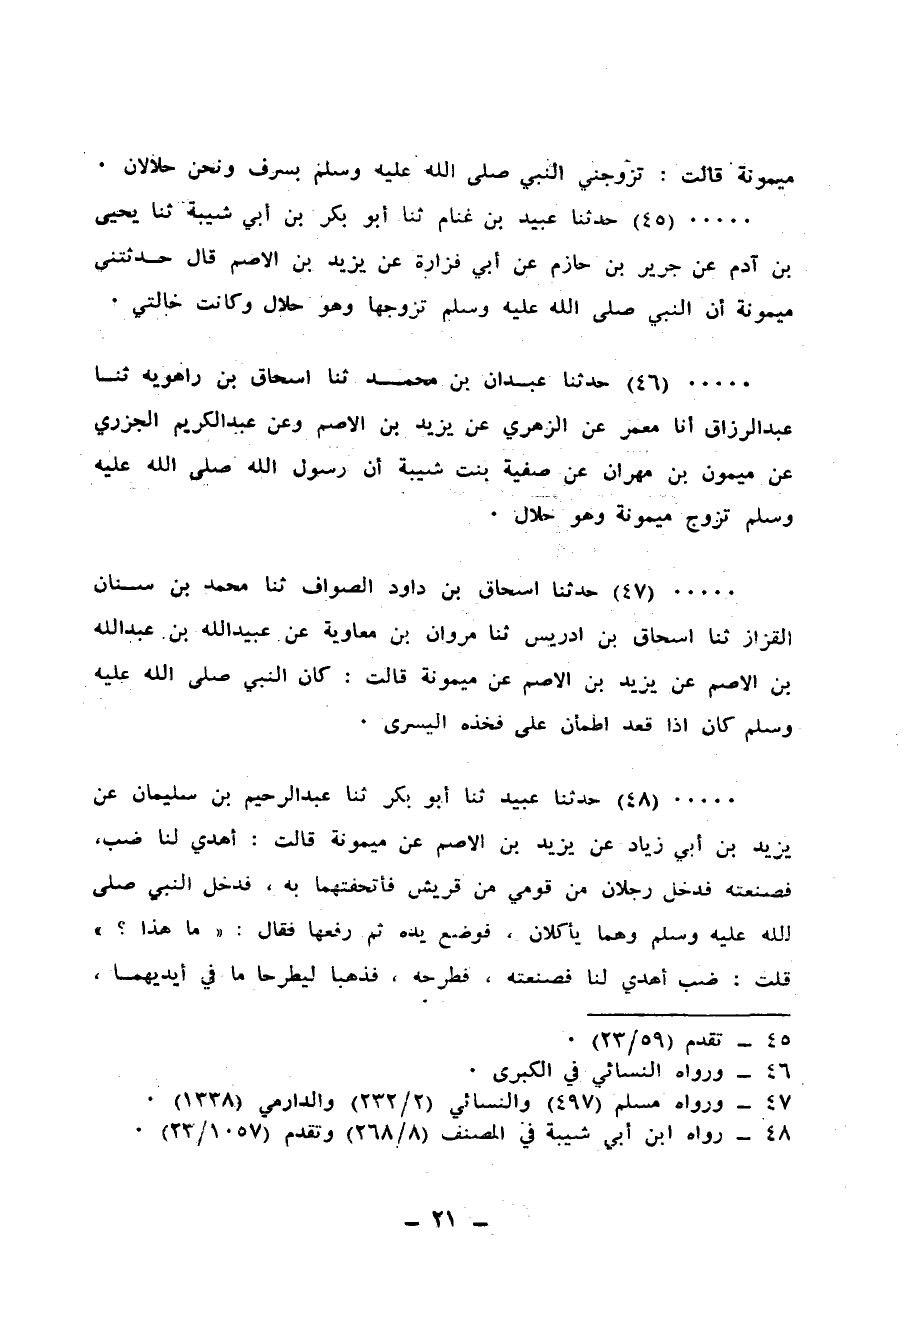 ميمونة قالت : تزوجني النبي صلى الله عليه وسلم بسرف ونحن حلالان ٠
٠٠٠٠٠ (٤٥) حدثنا عبيد بن غنام ثنا أبو بكر بن أبي شيبة ثنا يحيى
بن آدم عن جرير بن حازم عن أبي فزارة عن يزيد بن الاصم قال حــدثتني
ميمونة أن النبي صلى الله عليه وسلم تزوجها وهو حلال وكانت خالتي ٠
٠٠٠٠٠ (٤٦) حدثنا عبــدان بن محمــــد ثنا اسحاق بن راهويه ثنـــا
عبدالرزاق أنا معمر عن الزهري عن يزيد بن الاصم وعن عبدالكريم الجزري
عن ميمون بن مهران عن صفية بنت شيبة أن رسول الله صلى الله عليه
وسلم تزوج ميمونة وهو حلال ٠
٠٠٠٠٠ (٤٧) حدثنا اسحاق بن داود الصواف ثنا محمد بن ســنان
القزاز ثنا اسحاق بن ادريس ثنا مروان بن معاوية عن عبيدالله بن عبدالله
بن الاصم عن يزيد بن الاصم عن ميمونة قالت : كان النبي صلى الله عليه
وسلم كان اذا قعد اطمأن على فخذه اليسرى ٠
٠٠٠٠٠ (٤٨) حدثنا عبيد ثنا أبو بكر ثنا عبدالرحيم بن سليمان عن
يزيد بن أبي زياد عن يزيد بن الاصم عن ميمونة قالت : أهدي لنا ضب،
فصنعته فدخل رجلان من قومي من قريش فأتحفتهما به ، فدخل النبي صلى
الله عليه وسلم وهما يأكلان ، فوضع يده ثم رفعها فقال : « ما هذا ؟ »
قلت : ضب أهدي لنا فصنعته ، فطرحه ، فذهبا ليطرحا ما في أيديهمــا ،
٤٥ ــ تقدم (٢٣/٥٩) ٠
٤٦ ــ ورواه النسائي في الكبرى ٠
٤٧ ــ ورواه مسلم (٤٩٧) والنسائي (٢٣٢/٢) والدارمي (١٣٣٨) ٠
٤٨ ــ رواه ابن أبي شيبة في المصنف (٢٦٨/٨) وتقدم (٢٣/١٠٥٧) ٠
ــ ٢١ ــ